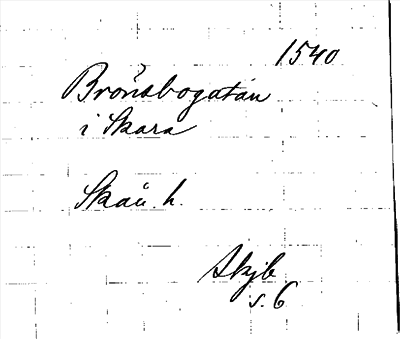 1540
Brönsbogatan
i Skara
Skån. h.
Skjb
s. 6